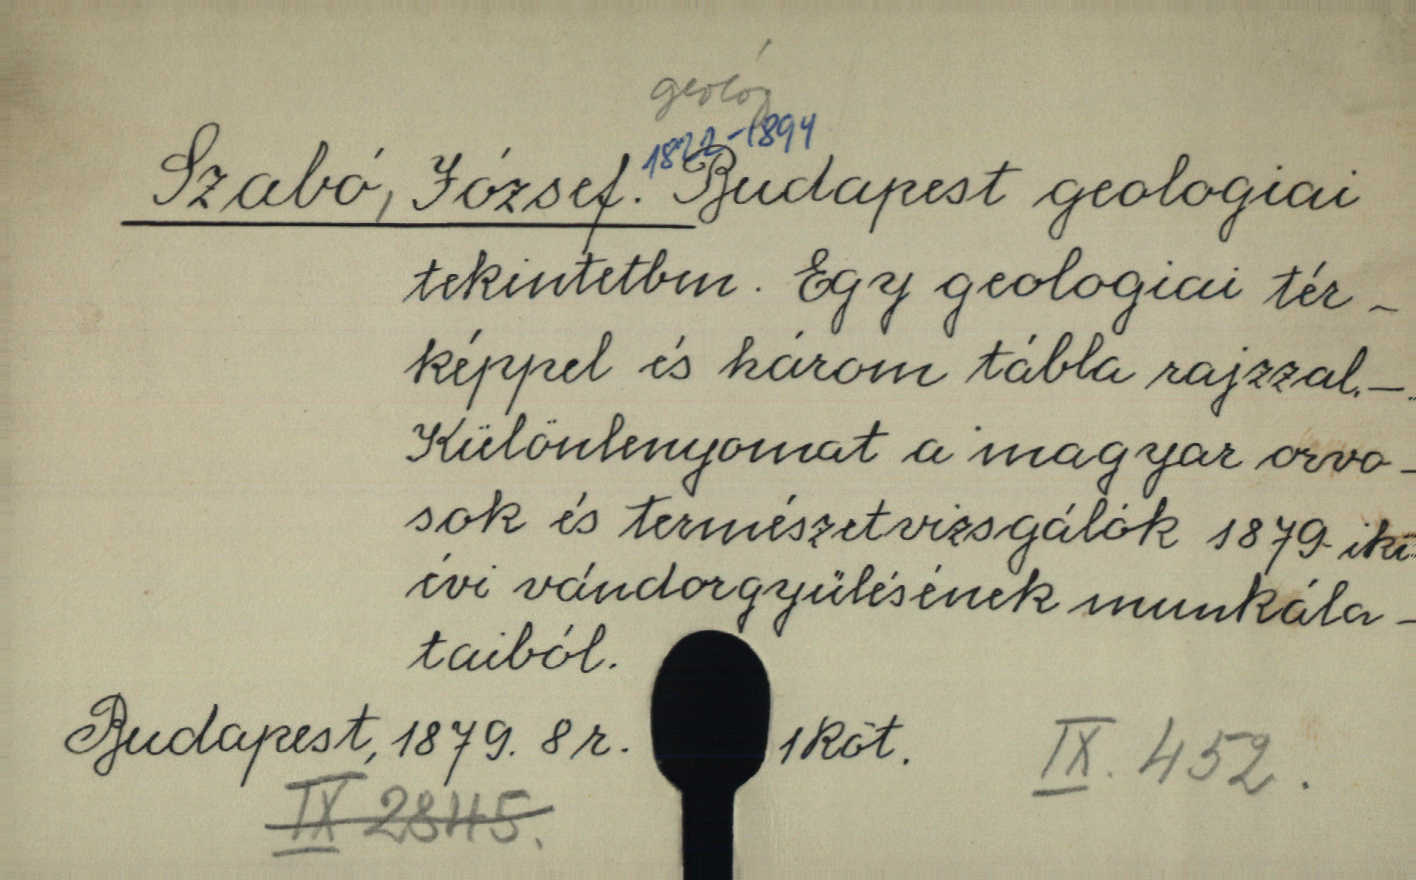 geológ
1822-1894
Szabó, József. Budapest geologiai
tekintetben. Egy geologiai tér-
képpel és három tábla rajzzal. —
Különlenyomat a magyar orvo-
sok és természetvizsgálók 1879-iki
évi vándorgyülésének munkála-
taiból.
Budapest, 1879. 8 r. 1 köt. IX. 452.
IX 2845.